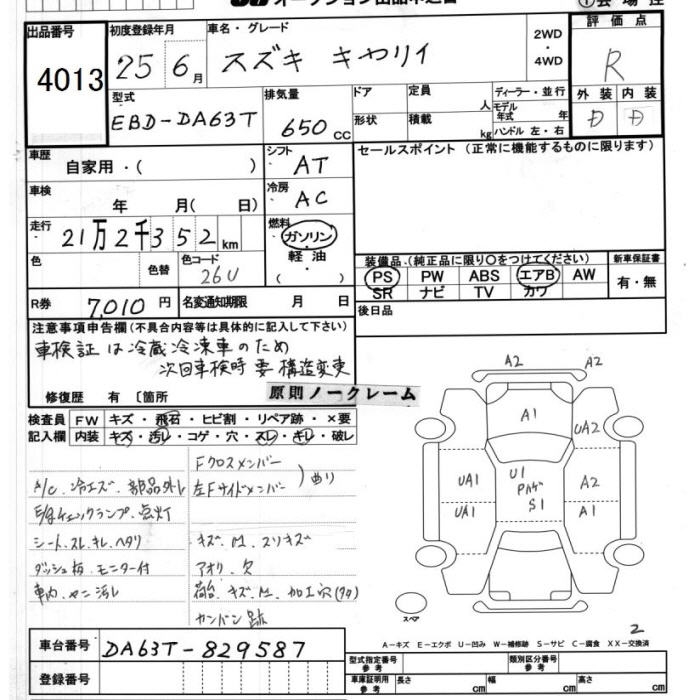 出品番号
4013
初度登録年月
25 年 6 月
車名・グレード
スズキ キャリイ
2WD
・
4WD
評価点
R
型式
EBD-DA63T
排気量
650 CC
ドア
形状
定員
人
積載
kg
ディーラー・並行
モデル
年式
年
ハンドル 左・右
外装 内装
D D
車歴
自家用・( )
シフト
AT
セールスポイント (正常に機能するものに限ります)
車検
年 月( 日)
冷房
AC
走行
21万2千352km
燃料
ガソリン
軽油
( )
色
色替
色コード
26U
装備品・(純正品に限り○をつけてください)
PS PW ABS エアB AW
SR ナビ TV カワ
新車保証書
有・無
R券
7,010 円
名変通知期限 月 日
後日品
注意事項申告欄(不具合内容等は具体的に記入して下さい)
車検証は冷蔵冷凍車のため
次回車検時 要 構造変更
修復歴 有 〔箇所
原則ノークレーム
検査員
記入欄
FW キズ・飛石・ヒビ割・リペア跡・×要
内装 キズ・汚レ・コゲ・穴・スレ・キレ・破レ
Fクロスメンバー
左Fサイドメンバー
曲り
A/C.冷エズ.部品外レ
チェックランプ.点灯
シート.スレ.キレ.ヘタリ
ダッシュ板.モニター付
車内.ヤニ汚レ
キズ.M.スリキズ
アオリ.欠
荷台.キズ.M.加工穴
カンバン跡
A2
A2
A1
UA2
UA1
U1
S1
A2
UA1
A1
スペア
2
A-キズ E-エクボ U-凹み W-補修跡 S-サビ C-腐食 XX-交換済
車台番号
DA63T-829587
登録番号
型式指定番号
参考
類別区分番号
参考
車庫証明用
参考
長さ cm
幅 cm
高さ cm